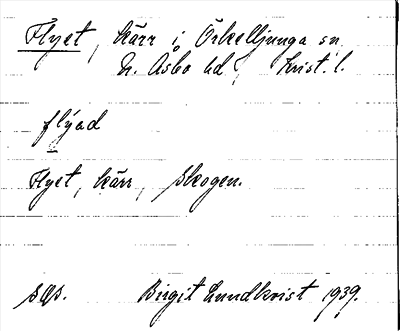 Flyet, kärr i Örkelljunga sn
N. Åsbo hd, Krist. l.
flýad
Flyet, kärr, skogen.
sgs. Birgit Lundkvist 1939.